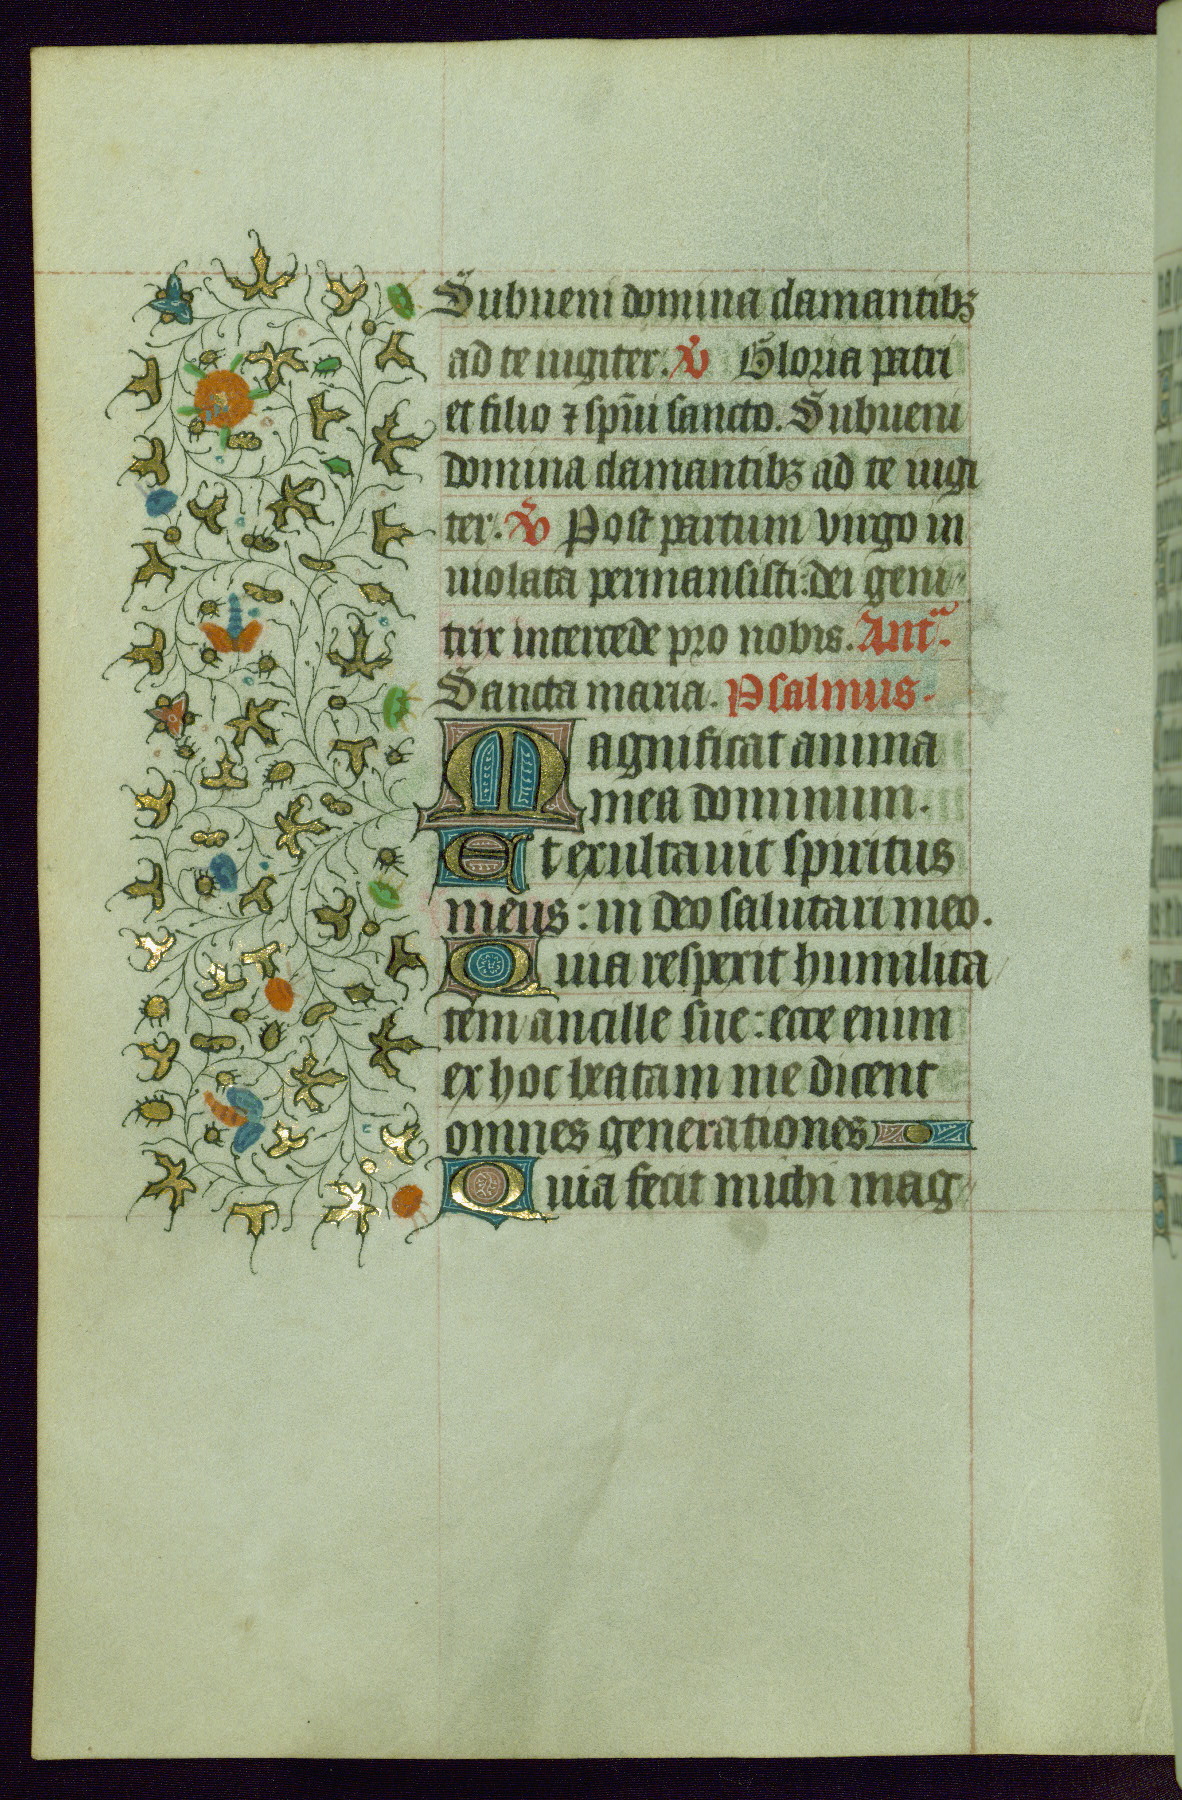 Subueni domina clamantibꝫ
ad te iugiter. ℣ Gloria patri
et filio ⁊ sp̄ui sancto. Subueni
domina clamantibꝫ ad te iugi
ter. ℣ Post partum virgo in
uiolata permansisti: dei geni-
trix intercede pro nobis. Antᵃ.
Sancta maria. Psalmus.
Magnificat anima
mea dominum.
Et exultauit spiritus
meus: in deo salutari meo.
Quia respexit humilita
tem ancille sue: ecce enim
ex hoc beatam me dicent
omnes generationes
Quia fecit michi mag-